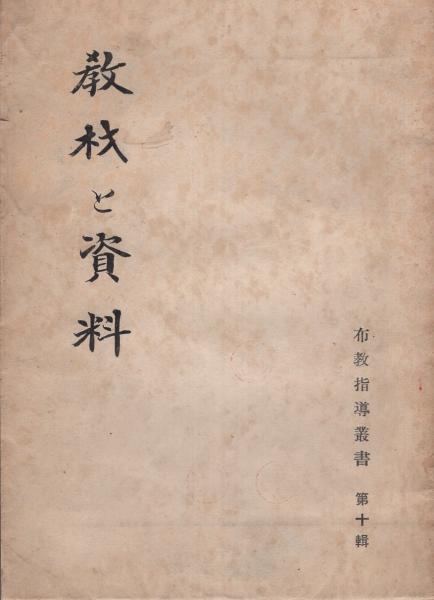 布教指導叢書 第十輯
教材と資料